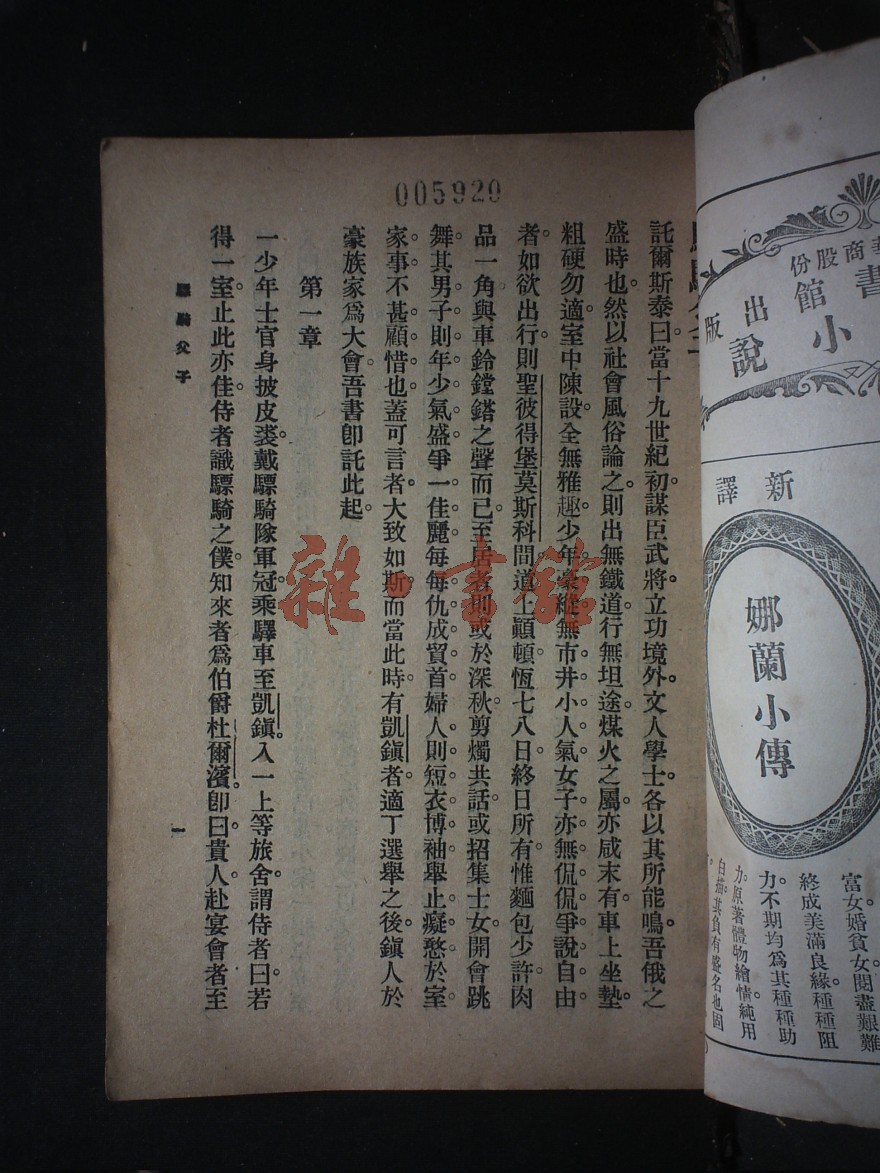 華商股份
書館
出版
小說
新譯
娜蘭小傳
富女婚貧女閱盡艱難
終成美滿良緣種種阻
力不期均為其種種助
力原著體物繪情純用
白描其負有盛名也固
005920
託爾斯泰曰當十九世紀初謀臣武將立功境外文人學士各以其所能鳴吾俄之
盛時也然以社會風俗論之則出無鐵道行無坦途煤火之屬亦咸末有車上坐墊
粗硬勿適室中陳設全無雅趣少年豪縱無市井小人氣女子亦無侃侃爭說自由
者如欲出行則聖彼得堡莫斯科間道上顚頓恆七八日終日所有惟麵包少許肉
品一角與車鈴鏜鎝之聲而已至居者則或於深秋剪燭共話或招集士女開會跳
舞其男子則年少氣盛爭一佳麗每每仇成貿首婦人則短衣博袖舉止癡憨於室
家事不甚顧惜也蓋可言者大致如斯而當此時有凱鎭者適丁選舉之後鎭人於
豪族家為大會吾書卽託此起
第一章
一少年士官身披皮裘戴驃騎隊軍冠乘驛車至凱鎭入一上等旅舍謂侍者曰若
得一室止此亦佳侍者識驃騎之僕知來者為伯爵杜爾濱卽曰貴人赴宴會者至
驃騎父子
一
雜·書館